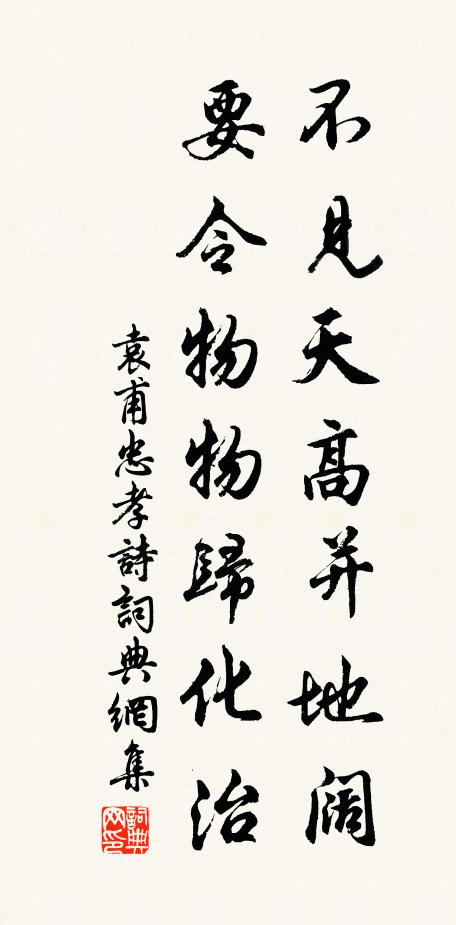 不見天高并地阔
要令物物歸化治
袁甫忠孝詩詞典網集
詞典网印